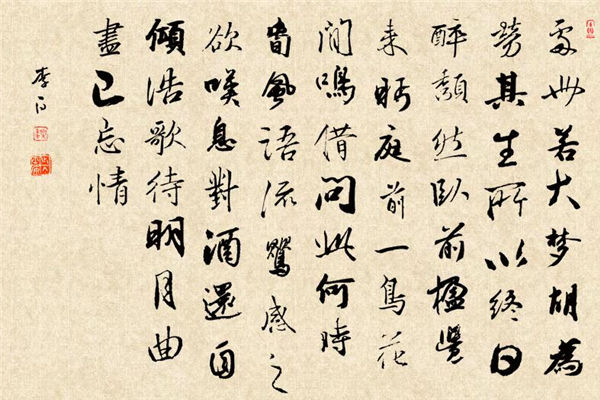 處世若大梦胡為
勞其生所以終日
醉頹然臥前楹覺
来眄庭前一鳥花
間鳴借問此何時
旾風語流鶯感之
欲嘆息對酒還自
傾浩歌待明月曲
盡已忘情
李白